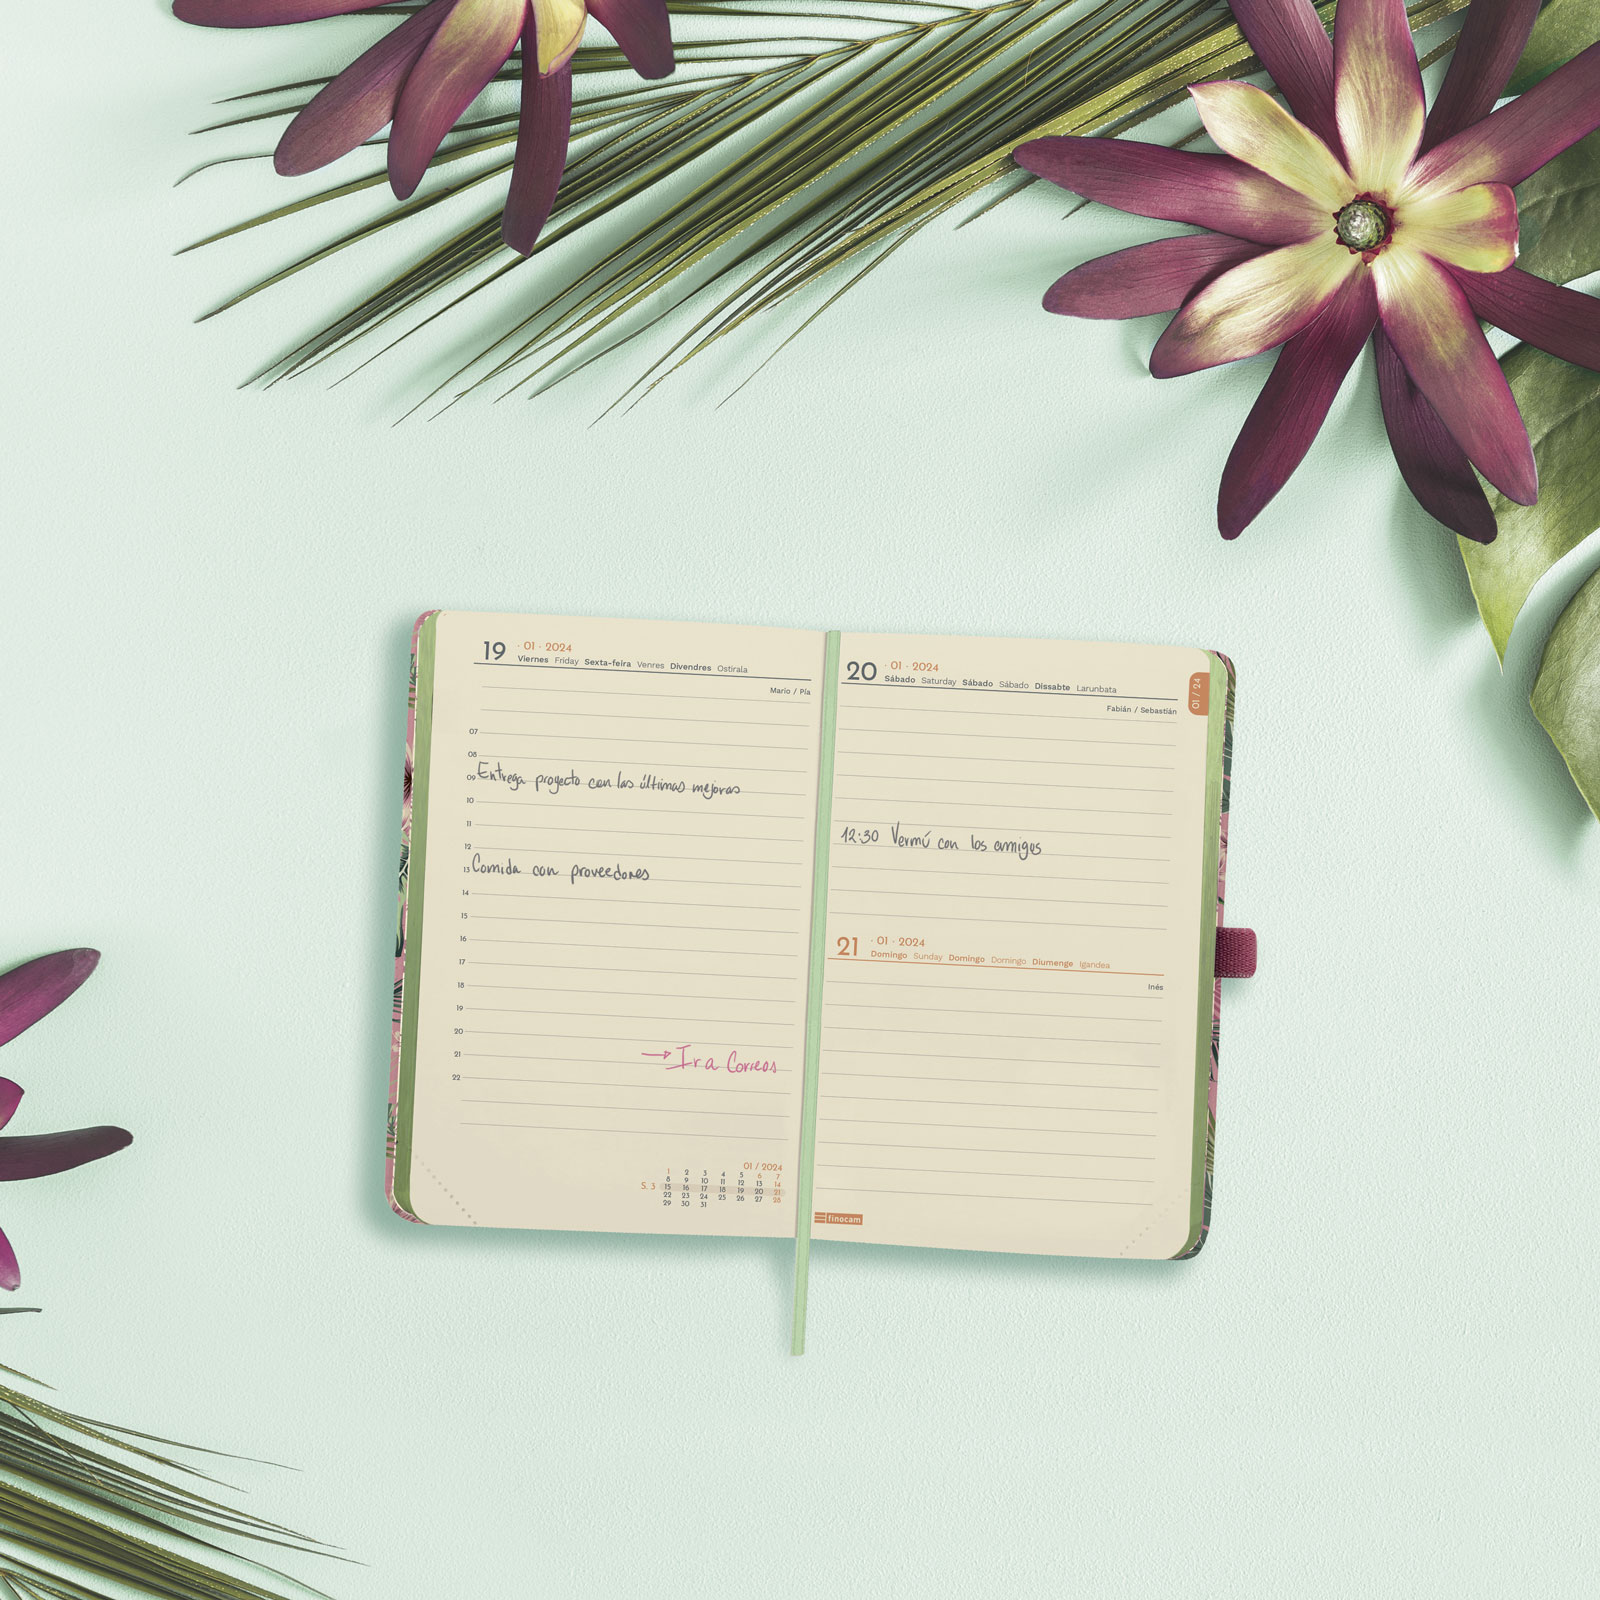 19 · 01 · 2024
Viernes Friday Sexta-feira Venres Divendres Ostirala
Mario / Pía
07
08
09 Entrega proyecto con las últimas mejoras
10
11
12
13 Comida con proveedores
14
15
16
17
18
19
20
21 → Ir a Correos
22
01 / 2024
1 2 3 4 5 6 7
8 9 10 11 12 13 14
S. 3 15 16 17 18 19 20 21
22 23 24 25 26 27 28
29 30 31
20 · 01 · 2024
Sábado Saturday Sábado Sábado Dissabte Larunbata
01 / 24
Fabián / Sebastián
12:30 Vermú con los amigos
21 · 01 · 2024
Domingo Sunday Domingo Domingo Diumenge Igandea
Inés
finocam